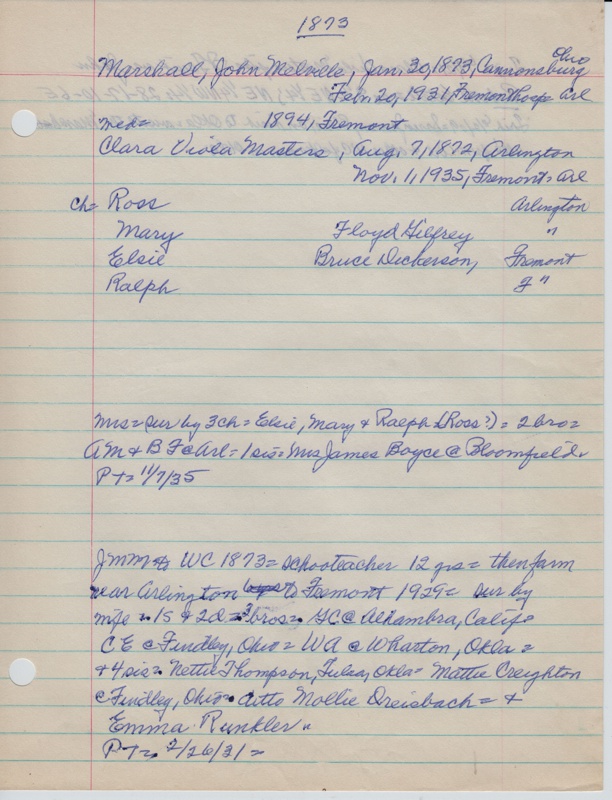 1873
Ohio
Marshall, John Melville, Jan. 30, 1873, Cannonsburg
Feb. 20, 1931, Fremont hosp = Arl
med = 1894, Fremont
Clara Viola Masters, Aug. 7, 1872, Arlington
Nov. 1, 1935, Fremont = Arl
Ch = Ross Arlington
Mary Floyd Gilfrey "
Elsie Bruce Dickerson, Fremont
Ralph "
Mrs = sur by 3 ch = Elsie, Mary & Ralph (Ross?) = 2 bro =
A M & B F @ Arl = 1 sis = Mrs James Boyce @ Bloomfield.
PT = 11/7/35
JMM WC 1873 = schoolteacher 12 yrs = then farm
near Arlington to Fremont 1929 = sur by
wife = 1S & 2D = 3 bros = GC @ Alhambra, Calif =
CE @ Findley, Ohio = WA @ Wharton, Okla =
& 4 sis = Nettie Thompson, Tulsa, Okla = Mattie Creighton
@ Findley, Ohio = ditto Mollie Dreisbach = &
Emma Runkler "
PT = 2/26/31 =